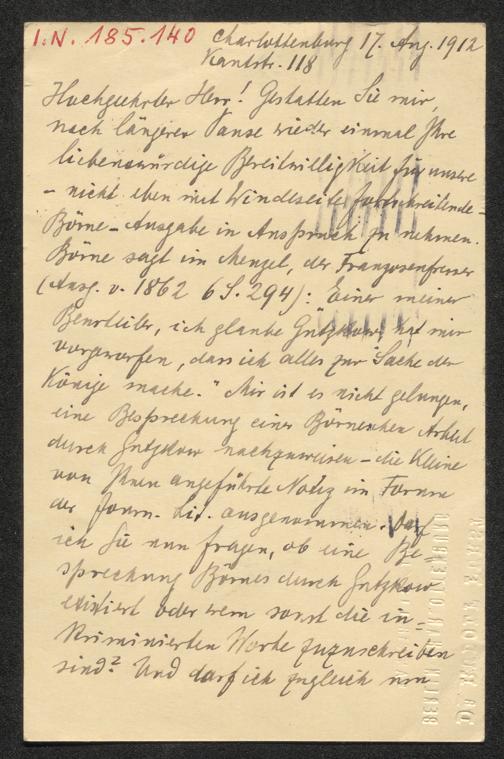 I.N. 185.140
Charlottenburg 17. Aug. 1912
Kantstr. 118
Hochgeehrter Herr! Gestatten Sie mir,
nach längerer Pause wieder einmal Ihre
liebenswürdige Bereitwilligkeit für unsere
- nicht eben mit Windeseile fortschreitende -
Börne-Ausgabe in Anspruch zu nehmen.
Börne sagt im Menzel, der Franzosenfresser
(Ausg. v. 1862 6 S. 294): Einer meiner
Beurteiler, ich glaube Gutzkow, hat mir
vorgeworfen, dass ich alles zur Sache der
Könige mache." Mir ist es nicht gelungen,
eine Besprechung einer Börneschen Arbeit
durch Gutzkow nachzuweisen - die kleine
von Ihnen angeführte Notiz im Forum
der Journ. Lit. ausgenommen. Darf
ich Sie nun fragen, ob eine Be-
sprechung Börnes durch Gutzkow
existiert oder wem sonst die in-
kriminierten Worte zuzuschreiben
sind? Und darf ich zugleich um